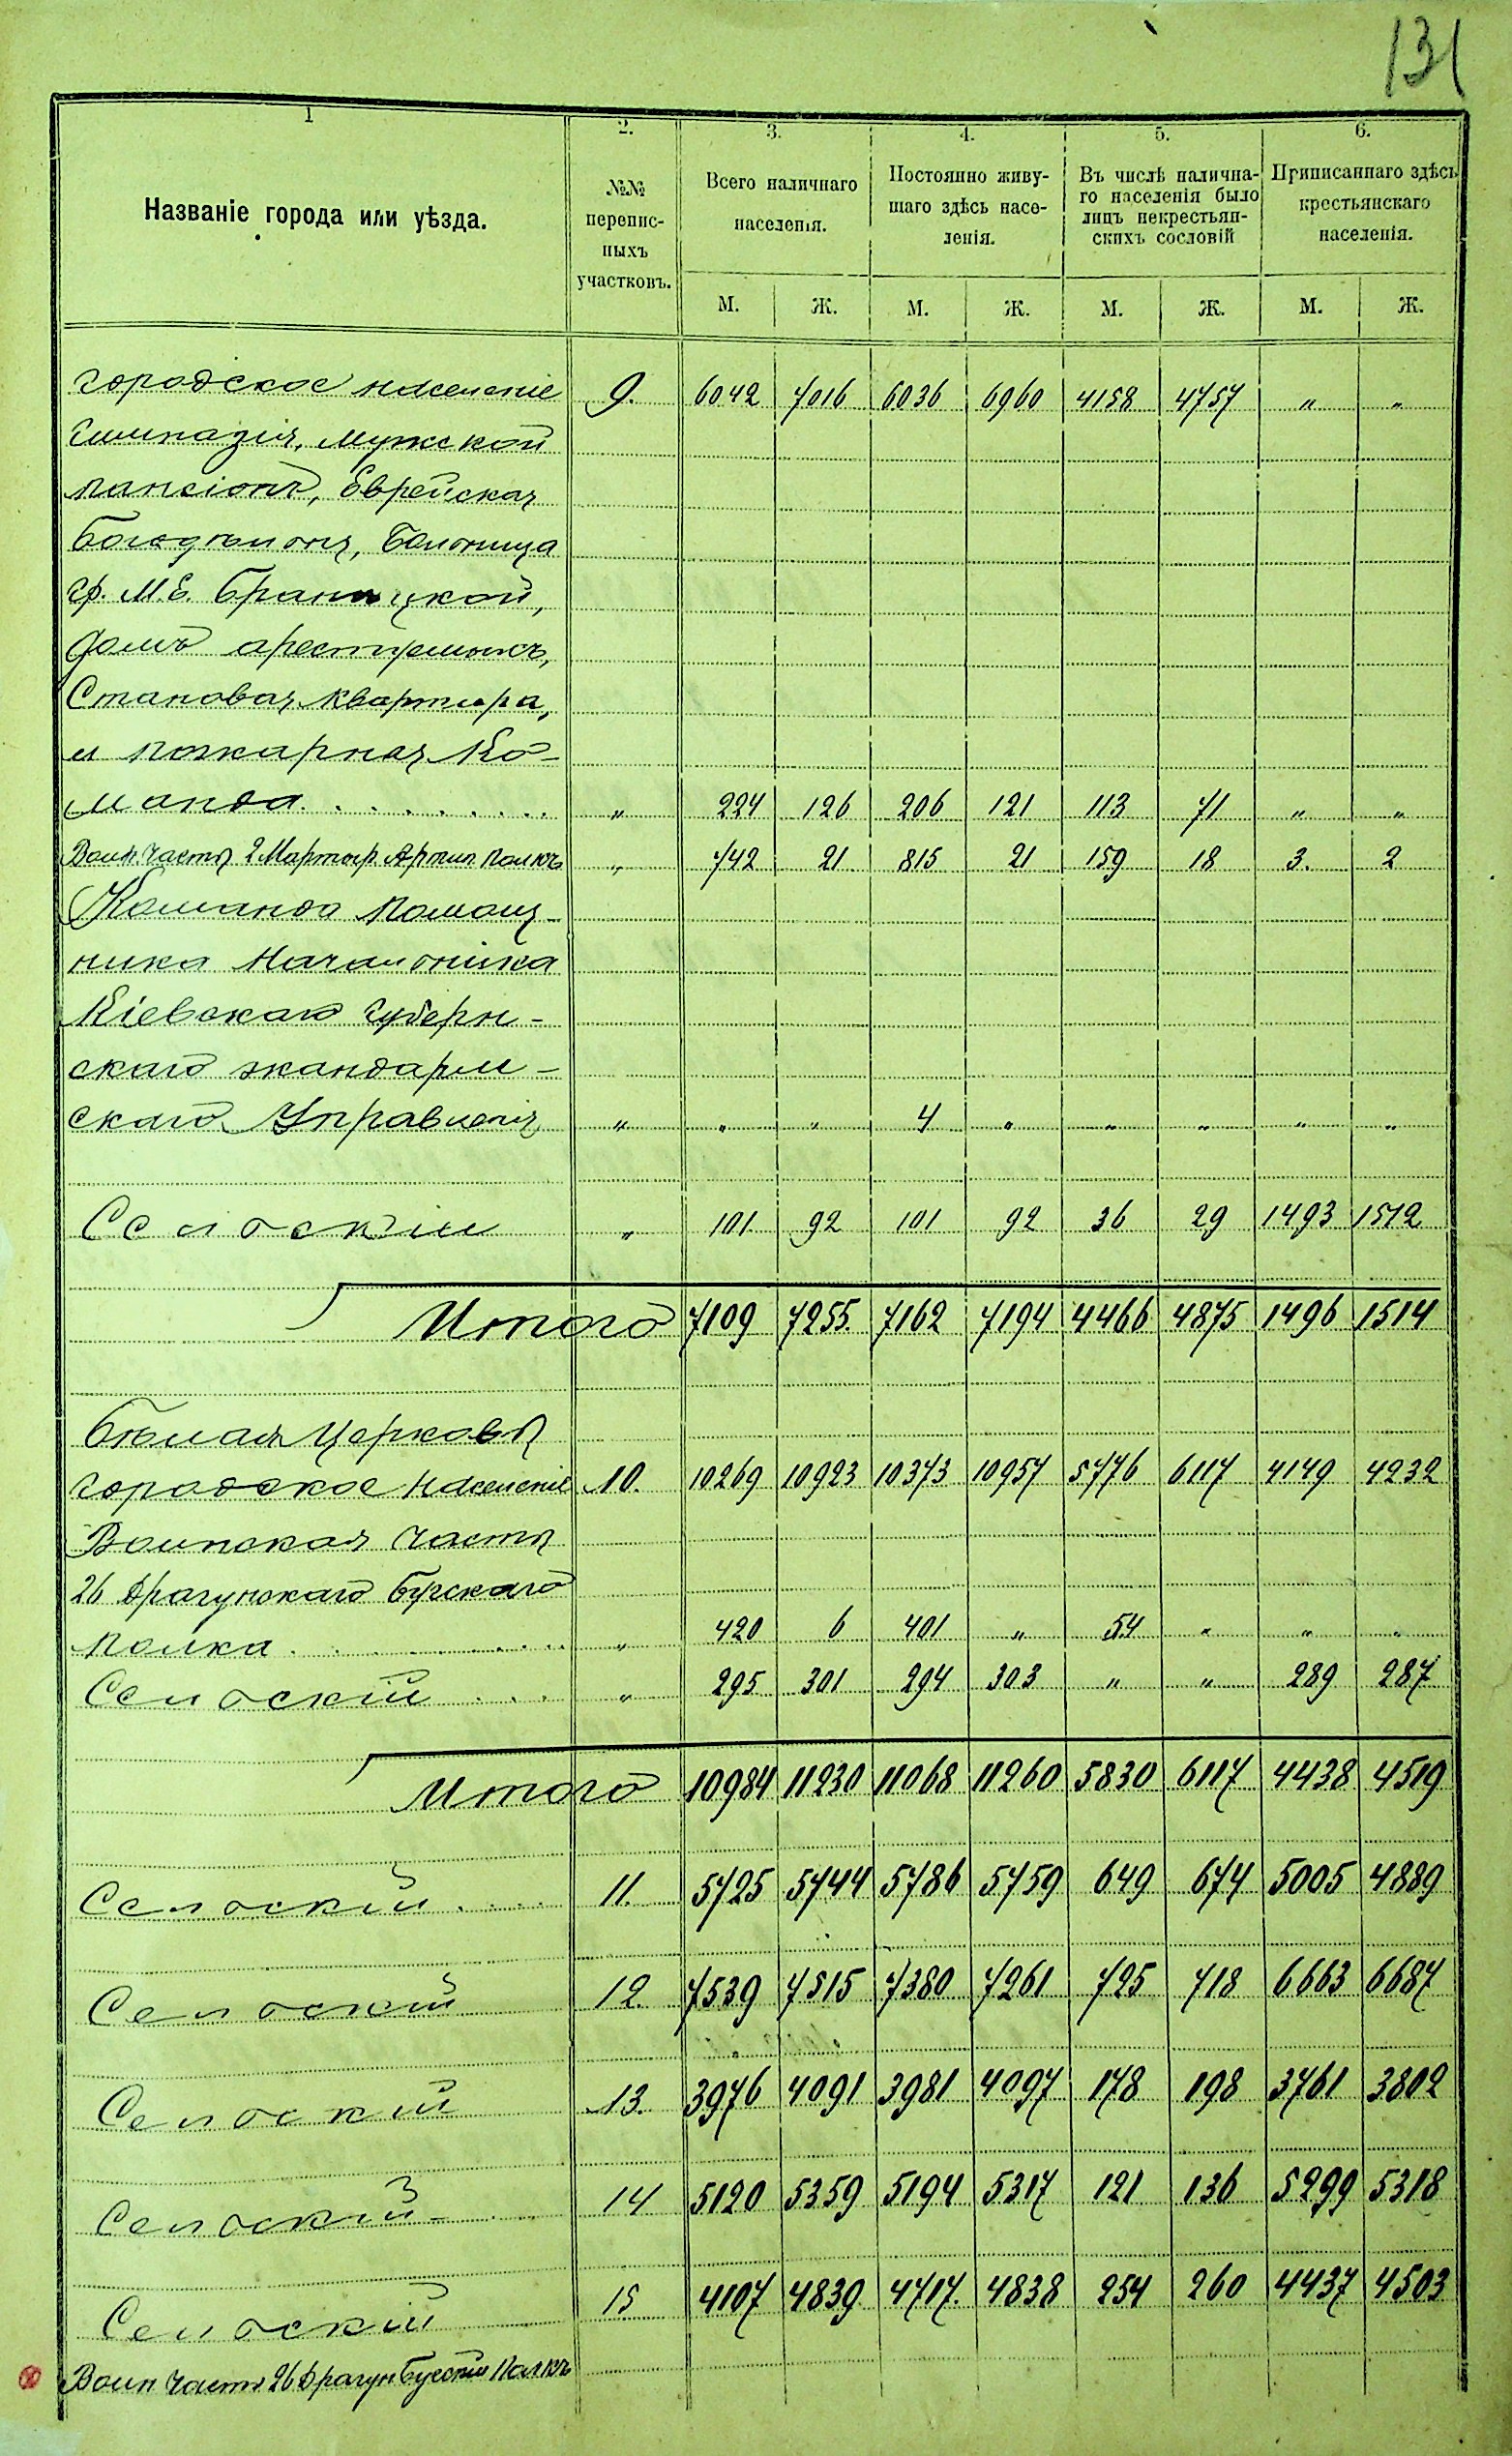 131
1 2. 3. 4. 5. 6.
Названіе города или уѣзда. №№ перепис- ныхъ участковъ. Всего наличнаго населенія. Постоянно живу- щаго здѣсь насе- ленія. Въ числѣ налична- го населенія было лицъ некрестьян- скихъ сословій Приписаннаго здѣсь крестьянскаго населенія.
М. Ж. М. Ж. М. Ж. М. Ж.
городское населеніе 9. 6042 7016 6036 6960 4158 4757 " "
Гимназія, мужской
пансіонъ, Еврейская
Богадѣльня, Больница
гр. М.Е. Браницкой,
домъ арестуемыхъ,
Становая квартира,
и пожарная Ко-
манда......... " 224 126 206 121 113 71 " "
Воин. часть 2 Мартир. Артил. полкъ " 742 21 815 21 159 18 3. 2
Команда Помощ-
ника Начальника
Кіевскаго Губерн-
скаго жандарм-
скаго Управленія " " " 4 " " " " "
Сельскій " 101 92 101 92 36 29 1493 1512
Итого 7109 7255 7162 7194 4466 4875 1496 1514
Бѣлая Церковь
городское населеніе 10. 10269 10923 10373 10957 5776 6117 4149 4232
Воинская часть
26 Драгунскаго Бугскаго
полка......... " 420 6 401 " 54 " " "
Сельскій.... " 295 301 294 303 " " 289 287
Итого 10984 11230 11068 11260 5830 6117 4438 4519
Сельскій..... 11. 5725 5744 5786 5759 649 674 5005 4889
Сельскій 12. 7539 7515 7380 7261 725 718 6663 6687
Сельскій 13. 3976 4091 3981 4097 178 198 3761 3802
Сельскій 14 5120 5359 5194 5317 121 136 5299 5318
Сельскій 15 4107 4839 4717. 4838 254 260 4437 4503
Воин часть 26 Драгун полкъ